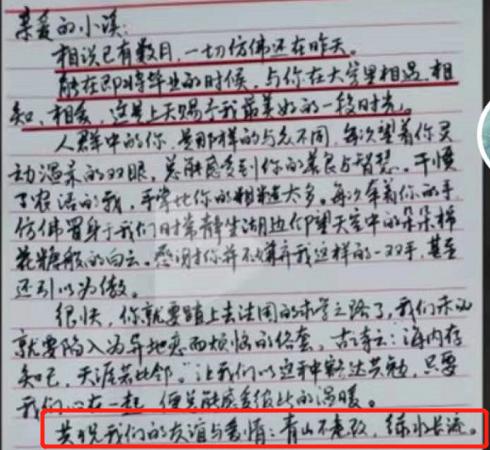 亲爱的小溪：
相识已有数月，一切仿佛还在昨天。
能在即将毕业的时候，与你在大学里相遇、相
知、相爱，这是上天赐予我最美好的一段时光。
人群中的你，是那样的与众不同，每次望着你灵
动温柔的双眼，总能感受到你的善良与智慧。干惯
了农活的我，手掌比你的粗糙太多。每次拿着你的手
仿佛置身于我们时常静坐湖边仰望天空中的朵朵棉
花糖般的白云。感谢你并不嫌弃我这样的一双手，甚至
还引以为傲。
很快，你就要踏上去法国的求学之路了，我们未必
就要陷入为异地恋而烦恼的俗套。古诗云：海内存
知己，天涯若比邻。让我们以这种豁达共勉，只要
我们心在一起，便总能感受彼此的温暖。
共祝我们的友谊与爱情：青山不老，绿水长流。